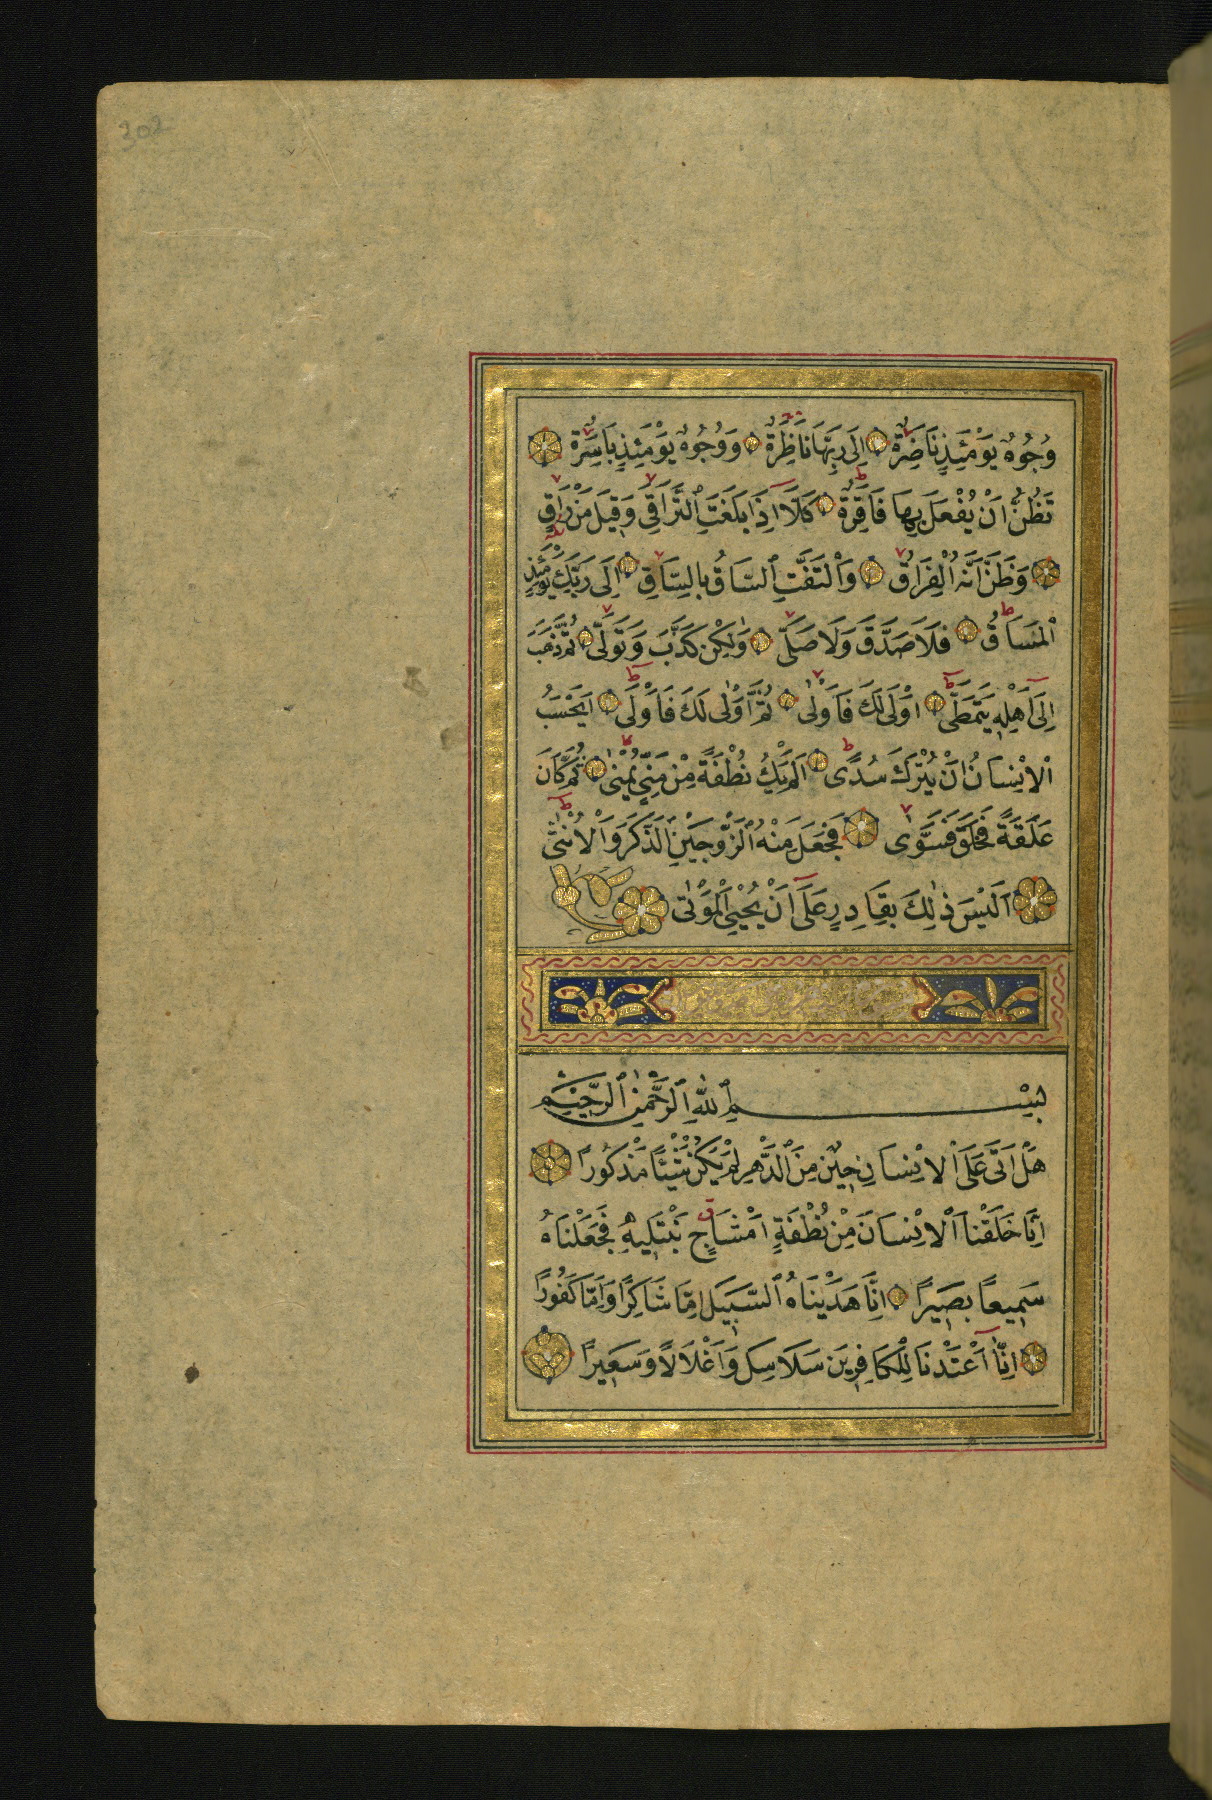 302
وُجُوهٌ يَوْمَئِذٍ نَاضِرَةٌ اِلَى رَبِّهَا نَاظِرَةٌ وَوُجُوهٌ يَوْمَئِذٍ بَاسِرَةٌ
تَظُنُّ اَنْ يُفْعَلَ بِهَا فَاقِرَةٌ كَلَّا اِذَا بَلَغَتِ ٱلتَّرَاقِيَ وَقِيلَ مَنْ رَاقٍ
وَظَنَّ اَنَّهُ ٱلْفِرَاقُ وَٱلْتَفَّتِ ٱلسَّاقُ بِالسَّاقِ اِلَى رَبِّكَ يَوْمَئِذٍ
ٱلْمَسَاقُ فَلَا صَدَّقَ وَلَا صَلَّى وَلٰكِنْ كَذَّبَ وَتَوَلَّى ثُمَّ ذَهَبَ
اِلَى اَهْلِهِ يَتَمَطَّى اَوْلَى لَكَ فَاَوْلٰى ثُمَّ اَوْلٰى لَكَ فَاَوْلَى اَيَحْسَبُ
ٱلْاِنْسَانُ اَنْ يُتْرَكَ سُدًى اَلَمْ يَكُ نُطْفَةً مِنْ مَنِيٍّ يُمْنٰى ثُمَّ كَانَ
عَلَقَةً فَخَلَقَ فَسَوّٰى فَجَعَلَ مِنْهُ ٱلزَّوْجَيْنِ ٱلذَّكَرَ وَٱلْاُنْثٰى
اَلَيْسَ ذٰلِكَ بِقَادِرٍ عَلَى اَنْ يُحْيِيَ ٱلْمَوْتٰى
بِسْمِ ٱللّٰهِ ٱلرَّحْمٰنِ ٱلرَّحِيمِ
هَلْ اَتَى عَلَى ٱلْاِنْسَانِ حِينٌ مِنَ ٱلدَّهْرِ لَمْ يَكُنْ شَيْئًا مَذْكُورًا
اِنَّا خَلَقْنَا ٱلْاِنْسَانَ مِنْ نُطْفَةٍ اَمْشَاجٍ نَبْتَلِيهِ فَجَعَلْنَاهُ
سَمِيعًا بَصِيرًا اِنَّا هَدَيْنَاهُ ٱلسَّبِيلَ اِمَّا شَاكِرًا وَاِمَّا كَفُورًا
اِنَّا اَعْتَدْنَا لِلْكَافِرِينَ سَلَاسِلَ وَاَغْلَالًا وَسَعِيرًا